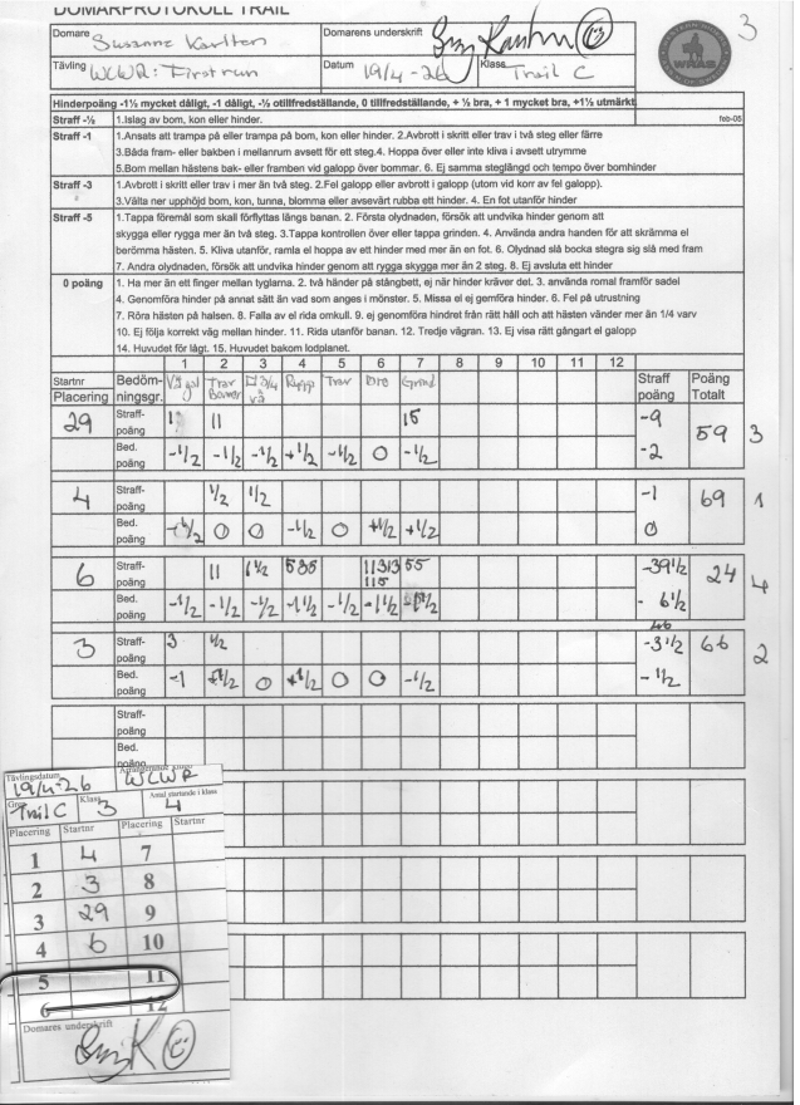 DOMARPROTOKOLL TRAIL
3
Domare Susanne Karlten
Domarens underskrift
Tävling WCWR: First run
Datum 19/4-26
Klass Trail C
WRAS
Hinderpoäng -1½ mycket dåligt, -1 dåligt, -½ otillfredställande, 0 tillfredställande, + ½ bra, + 1 mycket bra, +1½ utmärkt
feb-05
Straff -½ 1.Islag av bom, kon eller hinder.
Straff -1 1.Ansats att trampa på eller trampa på bom, kon eller hinder. 2.Avbrott i skritt eller trav i två steg eller färre
3.Båda fram- eller bakben i mellanrum avsett för ett steg.4. Hoppa över eller inte kliva i avsett utrymme
5.Bom mellan hästens bak- eller framben vid galopp över bommar. 6. Ej samma steglängd och tempo över bomhinder
Straff -3 1.Avbrott i skritt eller trav i mer än två steg. 2.Fel galopp eller avbrott i galopp (utom vid korr av fel galopp).
3.Välta ner upphöjd bom, kon, tunna, blomma eller avsevärt rubba ett hinder. 4. En fot utanför hinder
Straff -5 1.Tappa föremål som skall förflyttas längs banan. 2. Första olydnaden, försök att undvika hinder genom att
skygga eller rygga mer än två steg. 3.Tappa kontrollen över eller tappa grinden. 4. Använda andra handen för att skrämma el
berömma hästen. 5. Kliva utanför, ramla el hoppa av ett hinder med mer än en fot. 6. Olydnad slå bocka stegra sig slå med fram
7. Andra olydnaden, försök att undvika hinder genom att rygga skygga mer än 2 steg. 8. Ej avsluta ett hinder
0 poäng 1. Ha mer än ett finger mellan tyglarna. 2. två händer på stångbett, ej när hinder kräver det. 3. använda romal framför sadel
4. Genomföra hinder på annat sätt än vad som anges i mönster. 5. Missa el ej gemföra hinder. 6. Fel på utrustning
7. Röra hästen på halsen. 8. Falla av el rida omkull. 9. ej genomföra hindret från rätt håll och att hästen vänder mer än 1/4 varv
10. Ej följa korrekt väg mellan hinder. 11. Rida utanför banan. 12. Tredje vägran. 13. Ej visa rätt gångart el galopp
14. Huvudet för lågt. 15. Huvudet bakom lodplanet.
1 2 3 4 5 6 7 8 9 10 11 12
Startnr Bedöm- Vä gal Trav Bommar 3/4 vä Rygg Trav Bro Grind Straff Poäng
Placering ningsgr. poäng Totalt
29 Straff- poäng 1 11 15 -9 59 3
Bed. poäng -1/2 -1/2 -1/2 +1/2 -1/2 0 -1/2 -2
4 Straff- poäng 1/2 1/2 -1 69 1
Bed. poäng -1/2 0 0 -1/2 0 +1/2 +1/2 0
6 Straff- poäng 11 1 1/2 535 11313 115 55 -39 1/2 24 4
Bed. poäng -1/2 -1/2 -1/2 -1 1/2 -1/2 -1 1/2 -1 1/2 - 6 1/2
46
3 Straff- poäng 3 1/2 -3 1/2 66 2
Bed. poäng -1 +1/2 0 +1/2 0 0 -1/2 - 1/2
Straff- poäng
Bed. poäng
Tävlingsdatum
19/4-26 WCWR
Gren Trail C Klass 3 Antal startande i klass 4
Placering Startnr Placering Startnr
1 4 7
2 3 8
3 29 9
4 6 10
5 11
6 12
Domares underskrift